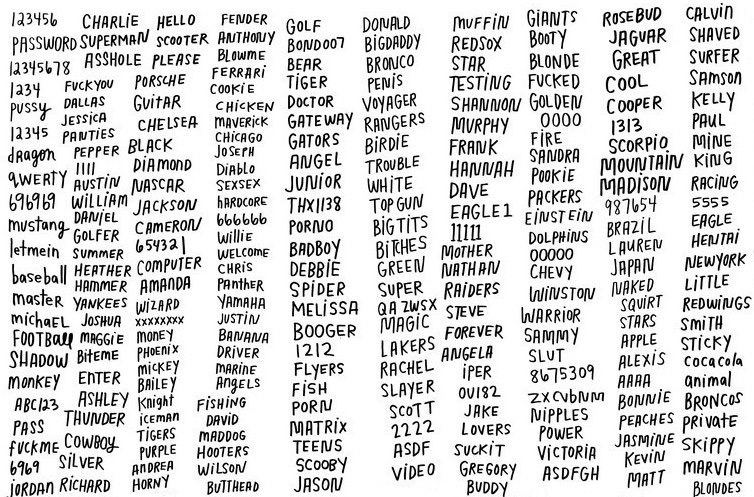 123456
PASSWORD
12345678
1234
PUSSY
12345
dragon
QWERTY
696969
mustang
letmein
baseball
master
michaEL
FOOTBall
SHADOW
MONKEY
ABC123
PASS
fuckme
6969
JORDAN
CHARLIE
SUPERMAN
ASSHOLE
FUCKYOU
DALLAS
JESSICA
PANTIES
PEPPER
1111
AUSTIN
WILLIAM
DANiEL
GOLFER
SUMMER
HEATHER
HAMMER
YANKEES
JOSHUA
MAGGIE
BiTEME
ENTER
ASHLEY
THUNDER
COWBOY
SILVER
RICHARD
HELLO
SCOOTER
PLEASE
PORSCHE
GUITAR
CHELSEA
BLACK
DIAMOND
NASCAR
JACKSON
CAMERON
654321
COMPUTER
AMANDA
WIZARD
XXXXXXXX
MONEY
PHOENIX
MICKEY
BAILEY
Knight
iceman
TIGERS
PURPLE
ANDREA
HORNY
FENDER
ANTHONY
BLOWME
FERRARI
COOKIE
CHICKEN
MAVERICK
CHICAGO
JOSEPH
DIABLO
SEXSEX
HARDCORE
666666
WILLIE
WELCOME
CHRIS
PANTHER
YAMAHA
JUSTIN
BANANA
DRIVER
MARINE
ANGELS
FISHING
DAVID
MADDOG
HOOTERS
WILSON
BUTTHEAD
GOLF
BOND007
BEAR
TIGER
DOCTOR
GATEWAY
GATORS
ANGEL
JUNIOR
THX1138
PORNO
BADBOY
DEBBIE
SPIDER
MELISSA
BOOGER
1212
FLYERS
FISH
PORN
MATRIX
TEENS
SCOOBY
JASON
DONALD
BIGDADDY
BRONCO
PENIS
VOYAGER
RANGERS
BIRDIE
TROUBLE
WHITE
TOPGUN
BIGTITS
BITCHES
GREEN
SUPER
QAZWSX
MAGIC
LAKERS
RACHEL
SLAYER
SCOTT
2222
ASDF
VIDEO
MUFFIN
REDSOX
STAR
TESTING
SHANNON
MURPHY
FRANK
HANNAH
DAVE
EAGLE1
11111
MOTHER
NATHAN
RAIDERS
STEVE
FOREVER
ANGELA
iPER
OU182
JAKE
LOVERS
SUCKIT
GREGORY
BUDDY
GIANTS
BOOTY
BLONDE
FUCKED
GOLDEN
0000
FIRE
SANDRA
POOKIE
PACKERS
EINSTEIN
DOLPHINS
00000
CHEVY
WINSTON
WARRIOR
SAMMY
SLUT
8675309
ZXCVBNM
NIPPLES
POWER
VICTORIA
ASDFGH
ROSEBUD
JAGUAR
GREAT
COOL
COOPER
1313
SCORPIO
MOUNTAIN
MADISON
987654
BRAZIL
LAUREN
JAPAN
NAKED
SQUIRT
STARS
APPLE
ALEXIS
AAAA
BONNIE
PEACHES
JASMINE
KEVIN
MATT
CALVIN
SHAVED
SURFER
SAMSON
KELLY
PAUL
MINE
KING
RACING
5555
EAGLE
HENTAI
NEWYORK
LITTLE
REDWINGS
SMITH
STICKY
cocacola
animal
BRONCOS
PRIVATE
SKIPPY
MARVIN
BLONDES